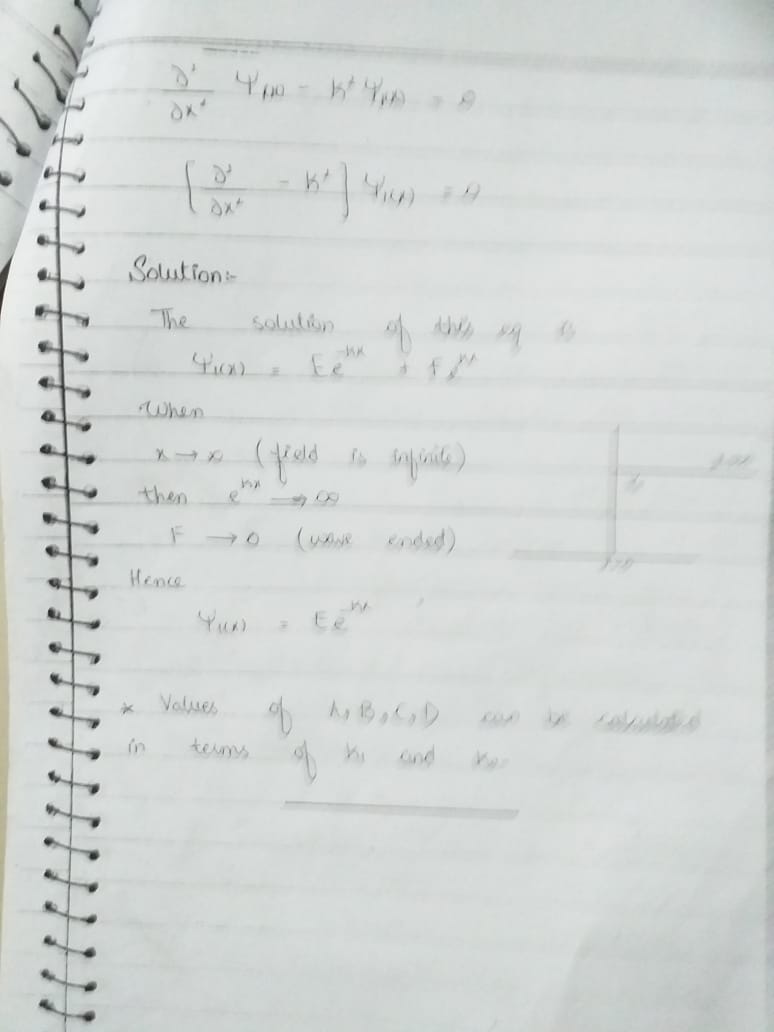 ∂²/∂x² Ψ(x) - K² Ψ(x) = 0
[∂²/∂x² - K²] Ψ(x) = 0
Solution:-
The solution of this eq is
Ψ(x) = Ee^-Kx + Fe^Kx
When
x → ∞ (field is infinite)
then e^Kx → ∞
F → 0 (wave ended)
Hence
Ψ(x) = Ee^-Kx
* Values of A, B, C, D can be calculated
in terms of K₁ and K₂.